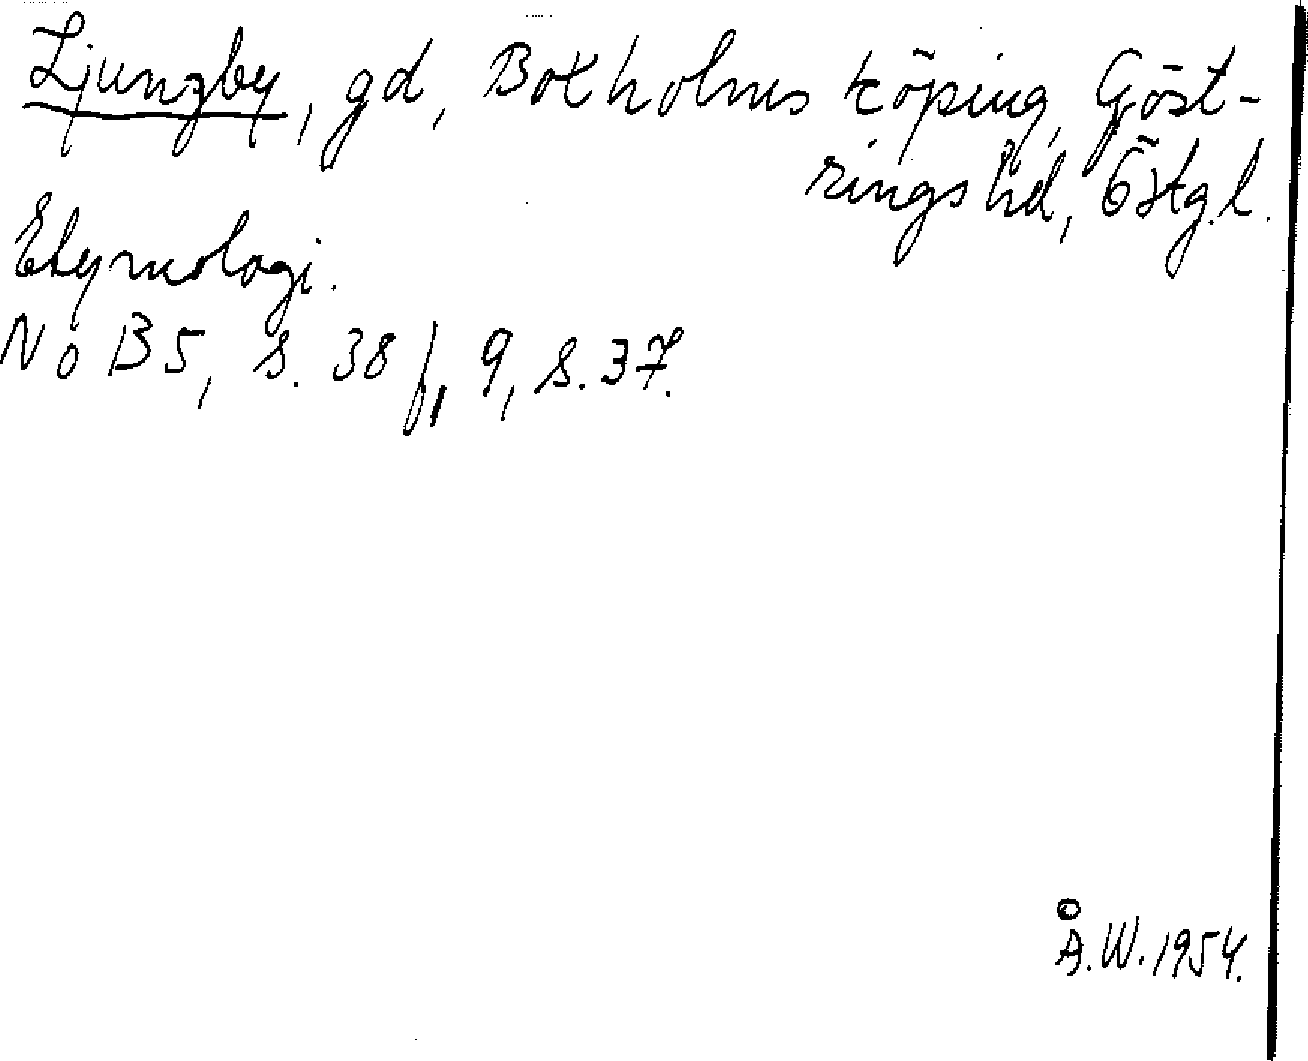 Ljungby, gd, Boxholms köping, Göst-
rings hd, Östg.l.
Etymologi.
NoB 5, s. 38 f, 9, s. 37.
Å.W. 1954.